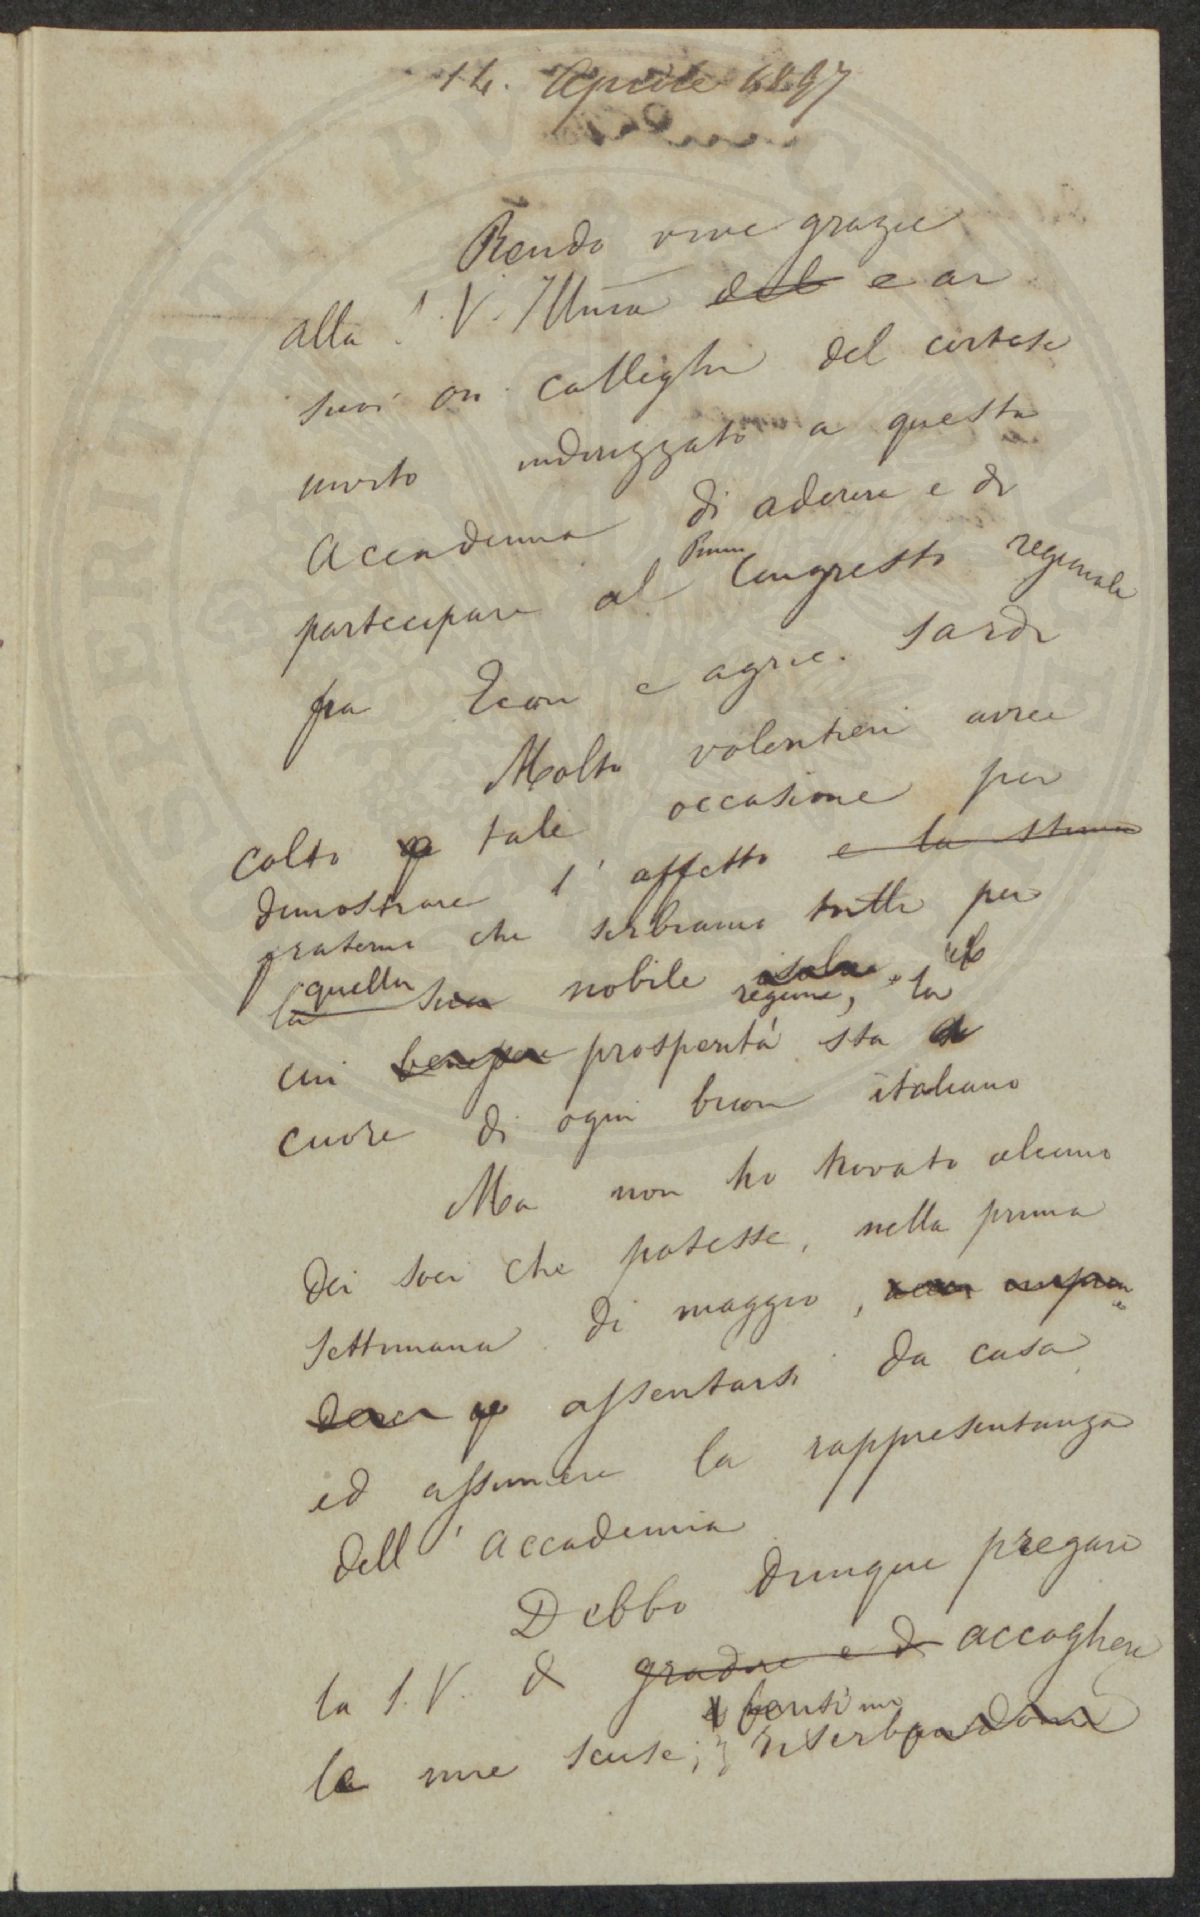 14. Aprile 1897
Rendo vive grazie
alla S. V. Illma del e ai
suoi on. colleghi del cortese
invito indirizzato a questa
Accademia di aderire e di
partecipare al Primo Congresso regionale
fra Econ e agric. sardi
Molto volentieri avrei
colto tale occasione per
dimostrare l'affetto e la stima
fraterno che serbiamo tutti per
la quella sua nobile isola regione, la
cui prosperità sta a
cuore di ogni buon italiano
Ma non ho trovato alcuno
dei soci che potesse, nella prima
settimana di maggio,
assentarsi da casa
ed assumere la rappresentanza
dell'Accademia
Debbo dunque pregare
la S. V. di gradire e di accogliere
le mie scuse;